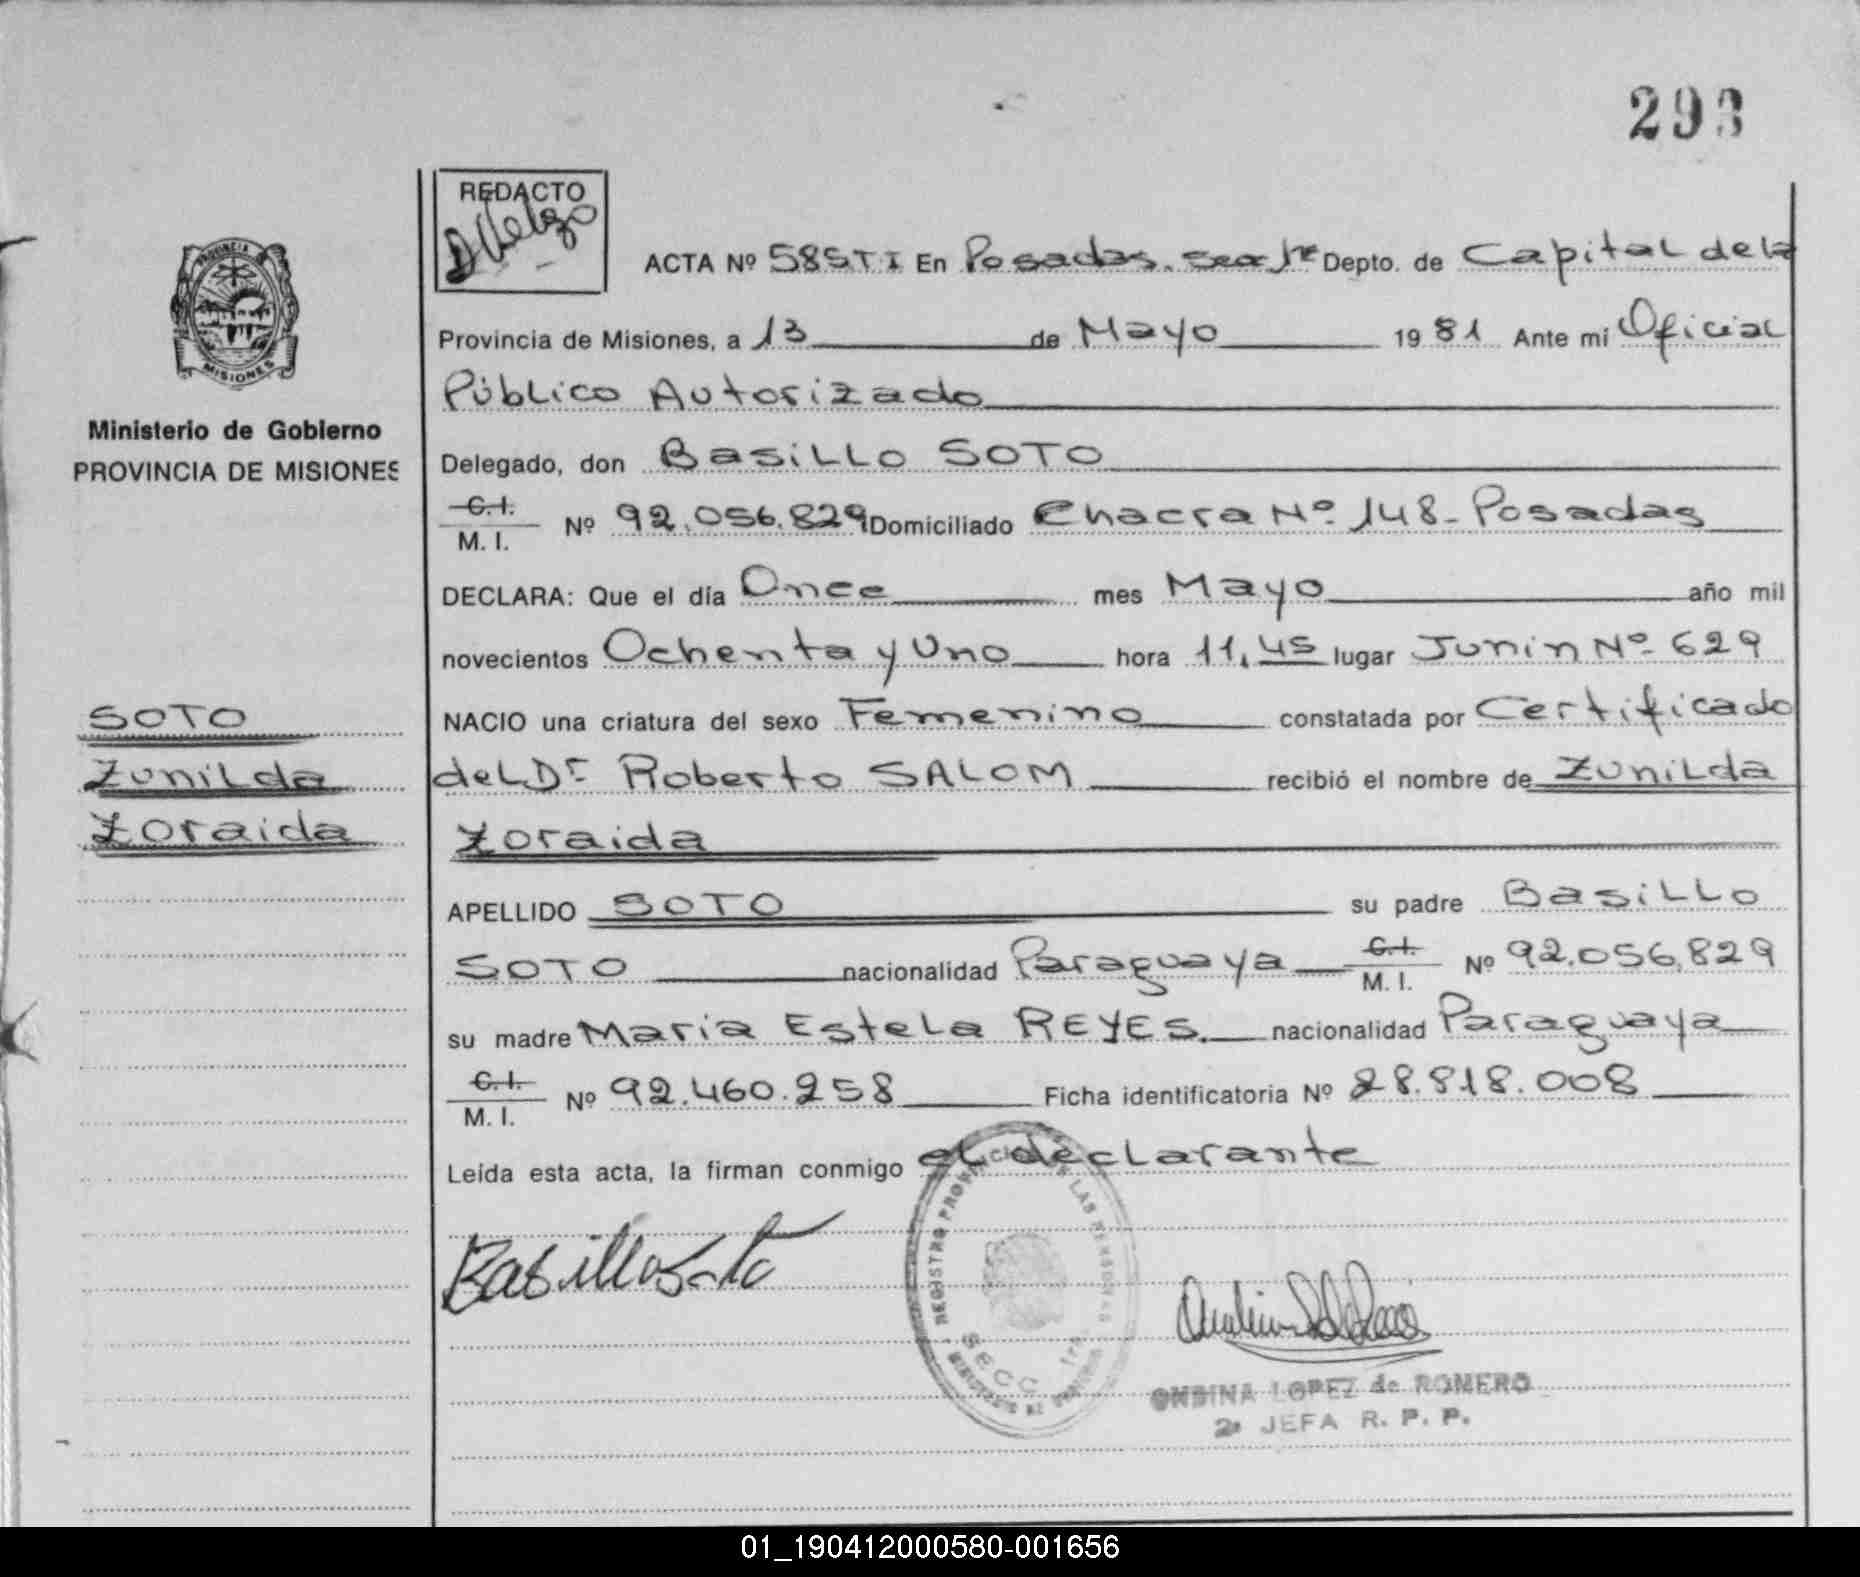 293
REDACTO
ACTA Nº 585TI En Posadas. Secc 1ra Depto. de Capital de la
Provincia de Misiones, a 13 de Mayo 1981 Ante mi Oficial
Público Autorizado
PROVINCIA
MISIONES
Ministerio de Gobierno
PROVINCIA DE MISIONES
Delegado, don Basillo SOTO
C.I.
M. I. Nº 92.056.829 Domiciliado Chacra Nº 148 - Posadas
DECLARA: Que el día Once mes Mayo año mil
novecientos Ochenta y Uno hora 11,45 lugar Junin Nº 629
NACIO una criatura del sexo Femenino constatada por Certificado
del Dr Roberto SALOM recibió el nombre de Zunilda
Zoraida
SOTO
Zunilda
Zoraida
APELLIDO SOTO su padre Basillo
SOTO nacionalidad Paraguaya C.I.
M. I. Nº 92.056.829
su madre Maria Estela REYES. nacionalidad Paraguaya
C.I.
M. I. Nº 92.460.258 Ficha identificatoria Nº 28.818.008
Leída esta acta, la firman conmigo el declarante
Basillo Soto
REGISTRO PROVINCIAL DE LAS PERSONAS
SECC 1ra
ONDINA LOPEZ de ROMERO
2ª JEFA R. P. P.
01_190412000580-001656